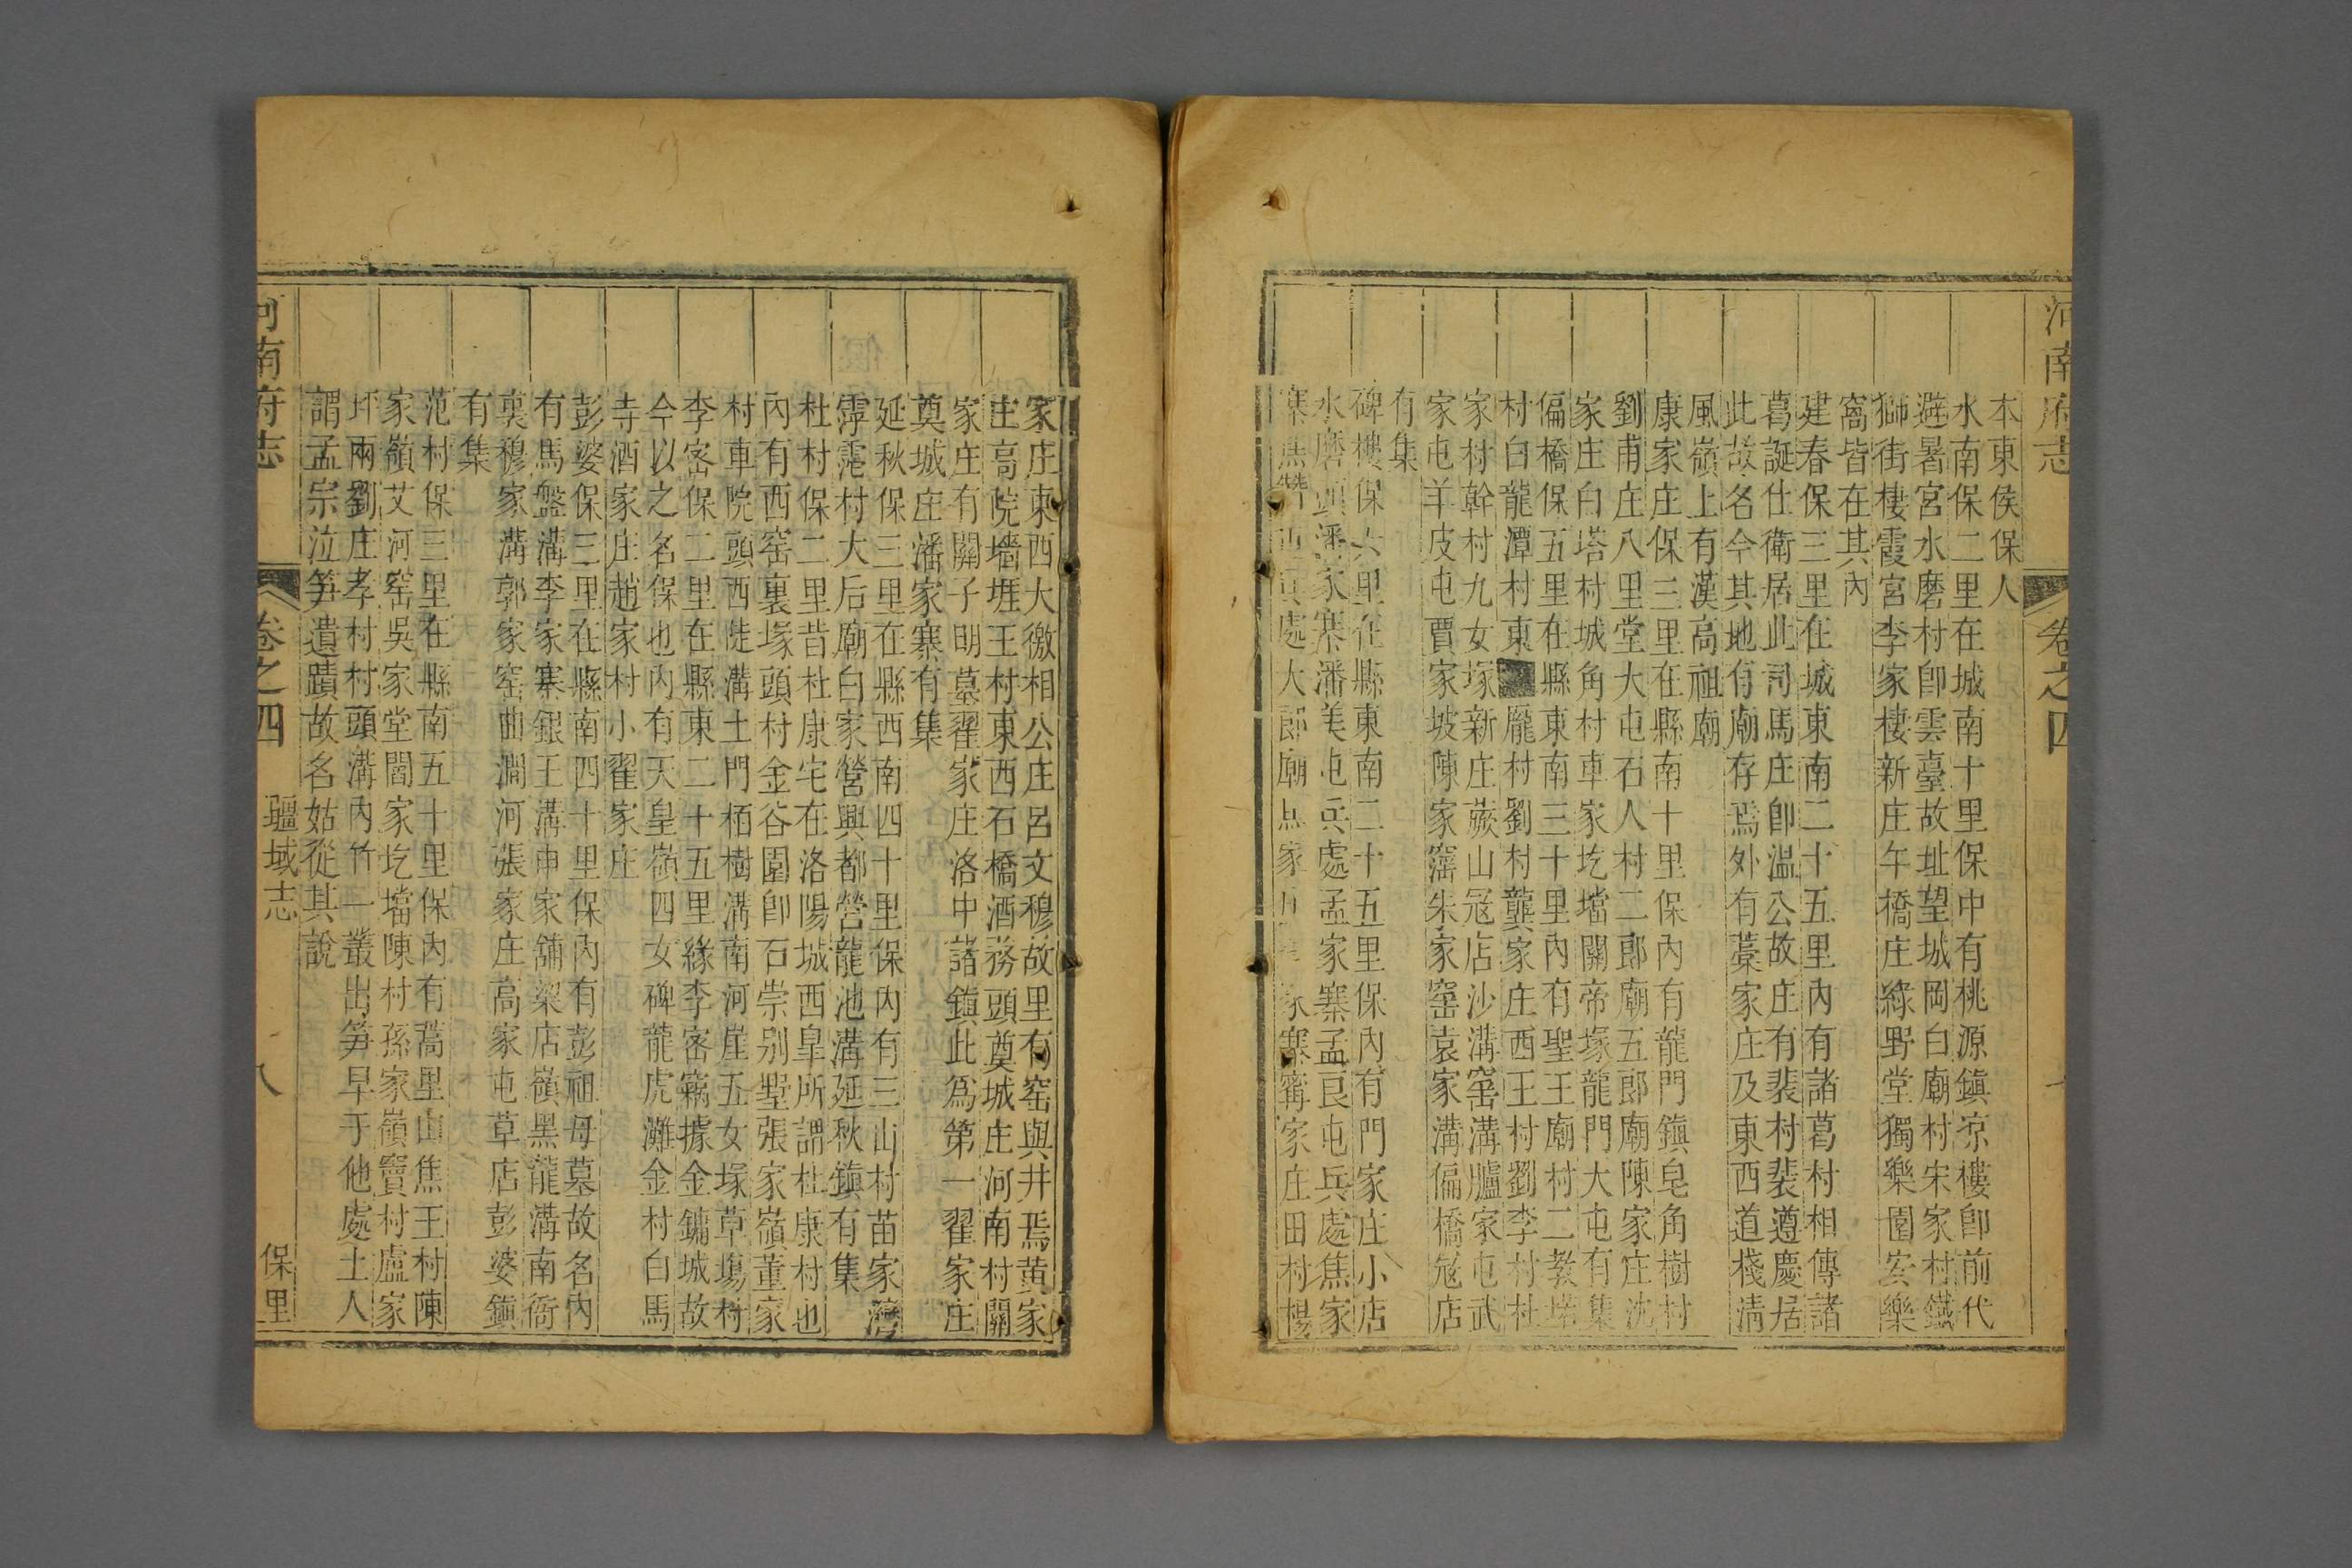 河南府志
卷之四
本東侯保人
水南保二里在城南十里保中有桃源鎮凉樓卽前代
避暑宮水磨村卽雲臺故址望城岡白廟村宋家村鐵
獅街棲霞宮李家樓新庄午橋庄綠野堂獨樂園安樂
窩皆在其內
建春保三里在城東南二十五里內有諸葛村相傳諸
葛誕仕衛居此司馬庄卽溫公故庄有裴村裴遵慶居
此故名今其地有廟存焉外有藁家庄及東西道棧淸
風嶺上有漢高祖廟
康家庄保三里在縣南十里保內有龍門鎮皂角樹村
劉甫庄八里堂大屯石人村二郎廟五郎廟陳家庄沈
家庄白塔村城角村車家圪壋關帝塚龍門大屯有集
偏橋保五里在縣東南三十里內有聖王廟村二教塔
村白龍潭村東龐村劉村龔家庄西王村劉李村杜
家村幹村九女塚新庄蕨山冦店沙溝窑溝臚家屯武
家屯羊皮屯賈家坡陳家窰朱家窑袁家溝偏橋冦店
有集
碑樓保六里在縣東南二十五里保內有門家庄小店
水磨頭潘家寨潘美屯兵處孟家寨孟良屯兵處焦家
寨焦贊屯兵處大郎廟家寨寗家庄田村楊
家庄東西大徼相公庄呂文穆故里有窑與井焉黄家
庄高院墻堐王村東西石橋酒務頭奠城庄河南村關
家庄有關子明墓翟家庄洛中諸鎮此爲第一翟家庄
奠城庄潘家寨有集
延秋保三里在縣西南四十里保內有三山村苗家灣
霶霑村大后廟白家營興都營龍池溝延秋鎮有集
杜村保二里昔杜康宅在洛陽城西皐所謂杜康村也
內有西窑裏塚頭村金谷園卽石崇别墅張家嶺董家
村車院頭西徒溝土門栢樹溝南河崖五女塚草塲村
李密保二里在縣東二十五里緣李密竊據金鏞城故
今以之名保也內有天皇嶺四女碑龍虎灘金村白馬
寺酒家庄趙家村小翟家庄
彭婆保三里在縣南四十里保內有彭祖母墓故名內
有馬盤溝李家寨銀王溝申家舖梁店嶺黑龍溝南衙
裏穆家溝郭家窑曲澗河張家庄高家屯草店彭婆鎮
有集
范村保三里在縣南五十里保內有蒿里山焦王村陳
家嶺艾河窑吳家堂閻家圪壋陳村孫家嶺竇村盧家
圲兩劉庄孝村村頭溝內竹一叢出笋早于他處土人
謂孟宗泣笋遺蹟故名姑從其說
河南府志
卷之四
疆域志
八
保里